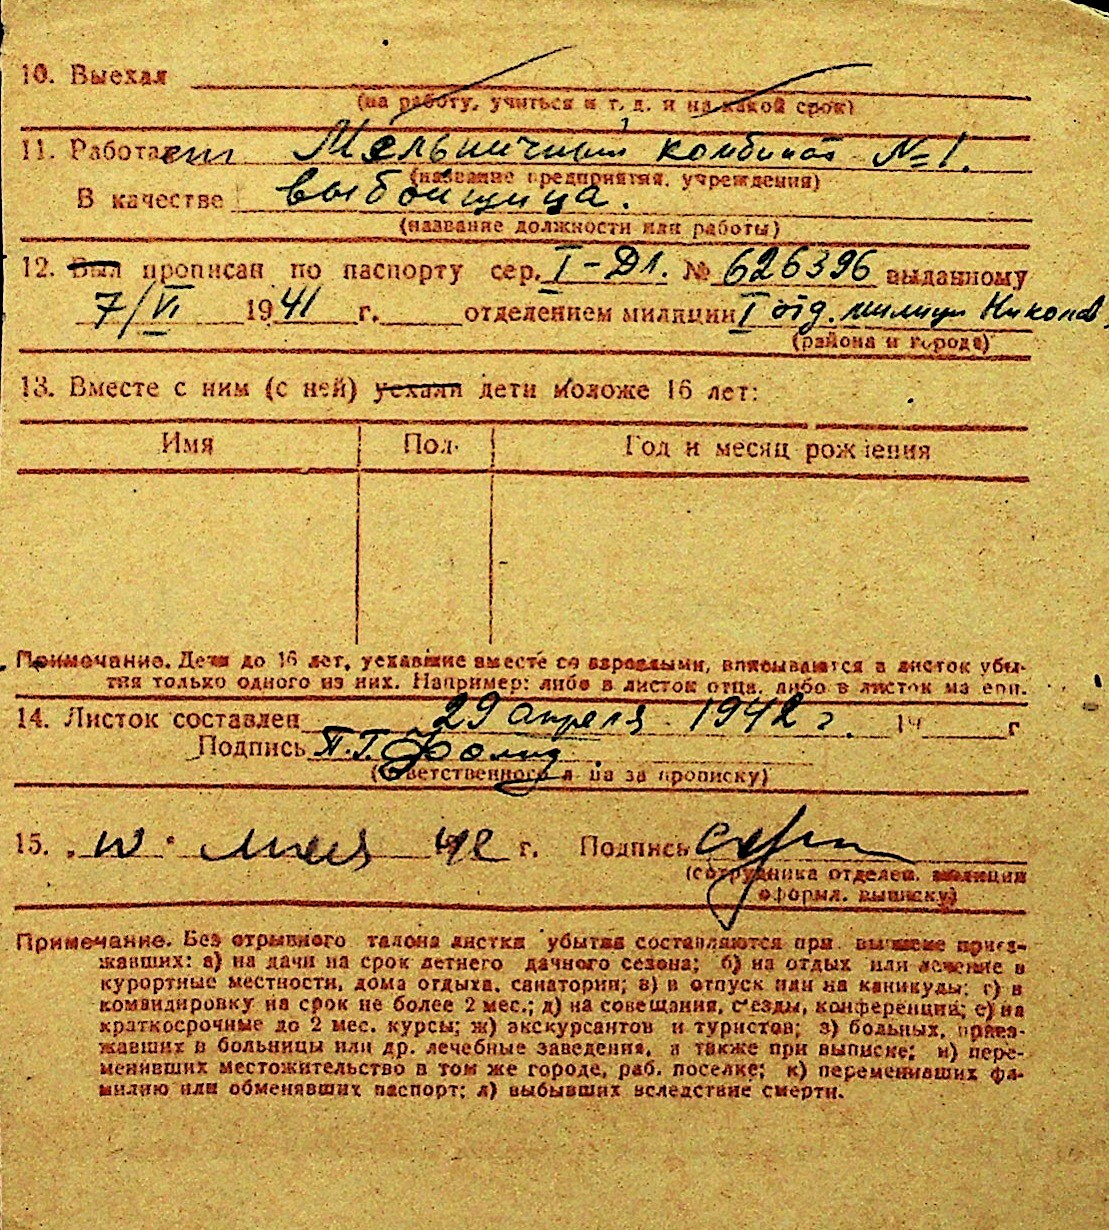 10. Выехал
(на работу, учиться и т. д. и на какой срок)
11. Работает Мельничный комбинат № 1.
(название предприятия, учреждения)
В качестве выбойщица.
(название должности или работы)
12. Был прописан по паспорту сер. I-ДЛ. № 626396 выданному
7/VI 1941 г. отделением милиции I отд. милиции Николаев
(района и города)
13. Вместе с ним (с ней) уехали дети моложе 16 лет:
Имя Пол Год и месяц рождения
Примечание. Дети до 16 лет, уехавшие вместе со взрослыми, вписываются в листок убы-
тия только одного из них. Например: либо в листок отца, либо в листок матери.
14. Листок составлен 29 апреля 1942 г. 19 г
Подпись П.Г.
(ответственного лица за прописку)
15. "10" мая 42 г. Подпись
(сотрудника отделен. милиции
оформл. выписку)
Примечание. Без отрывного талона листка убытия составляются при выписке приез-
жавших: а) на дачи на срок летнего дачного сезона; б) на отдых или лечение в
курортные местности, дома отдыха, санатории; в) в отпуск или на каникулы; г) в
командировку на срок не более 2 мес.; д) на совещания, съезды, конференции; е) на
краткосрочные до 2 мес. курсы; ж) экскурсантов и туристов; з) больных, приез-
жавших в больницы или др. лечебные заведения, а также при выписке; и) пере-
менивших местожительство в том же городе, раб. поселке; к) переменивших фа-
милию или обменявших паспорт; л) выбывших вследствие смерти.